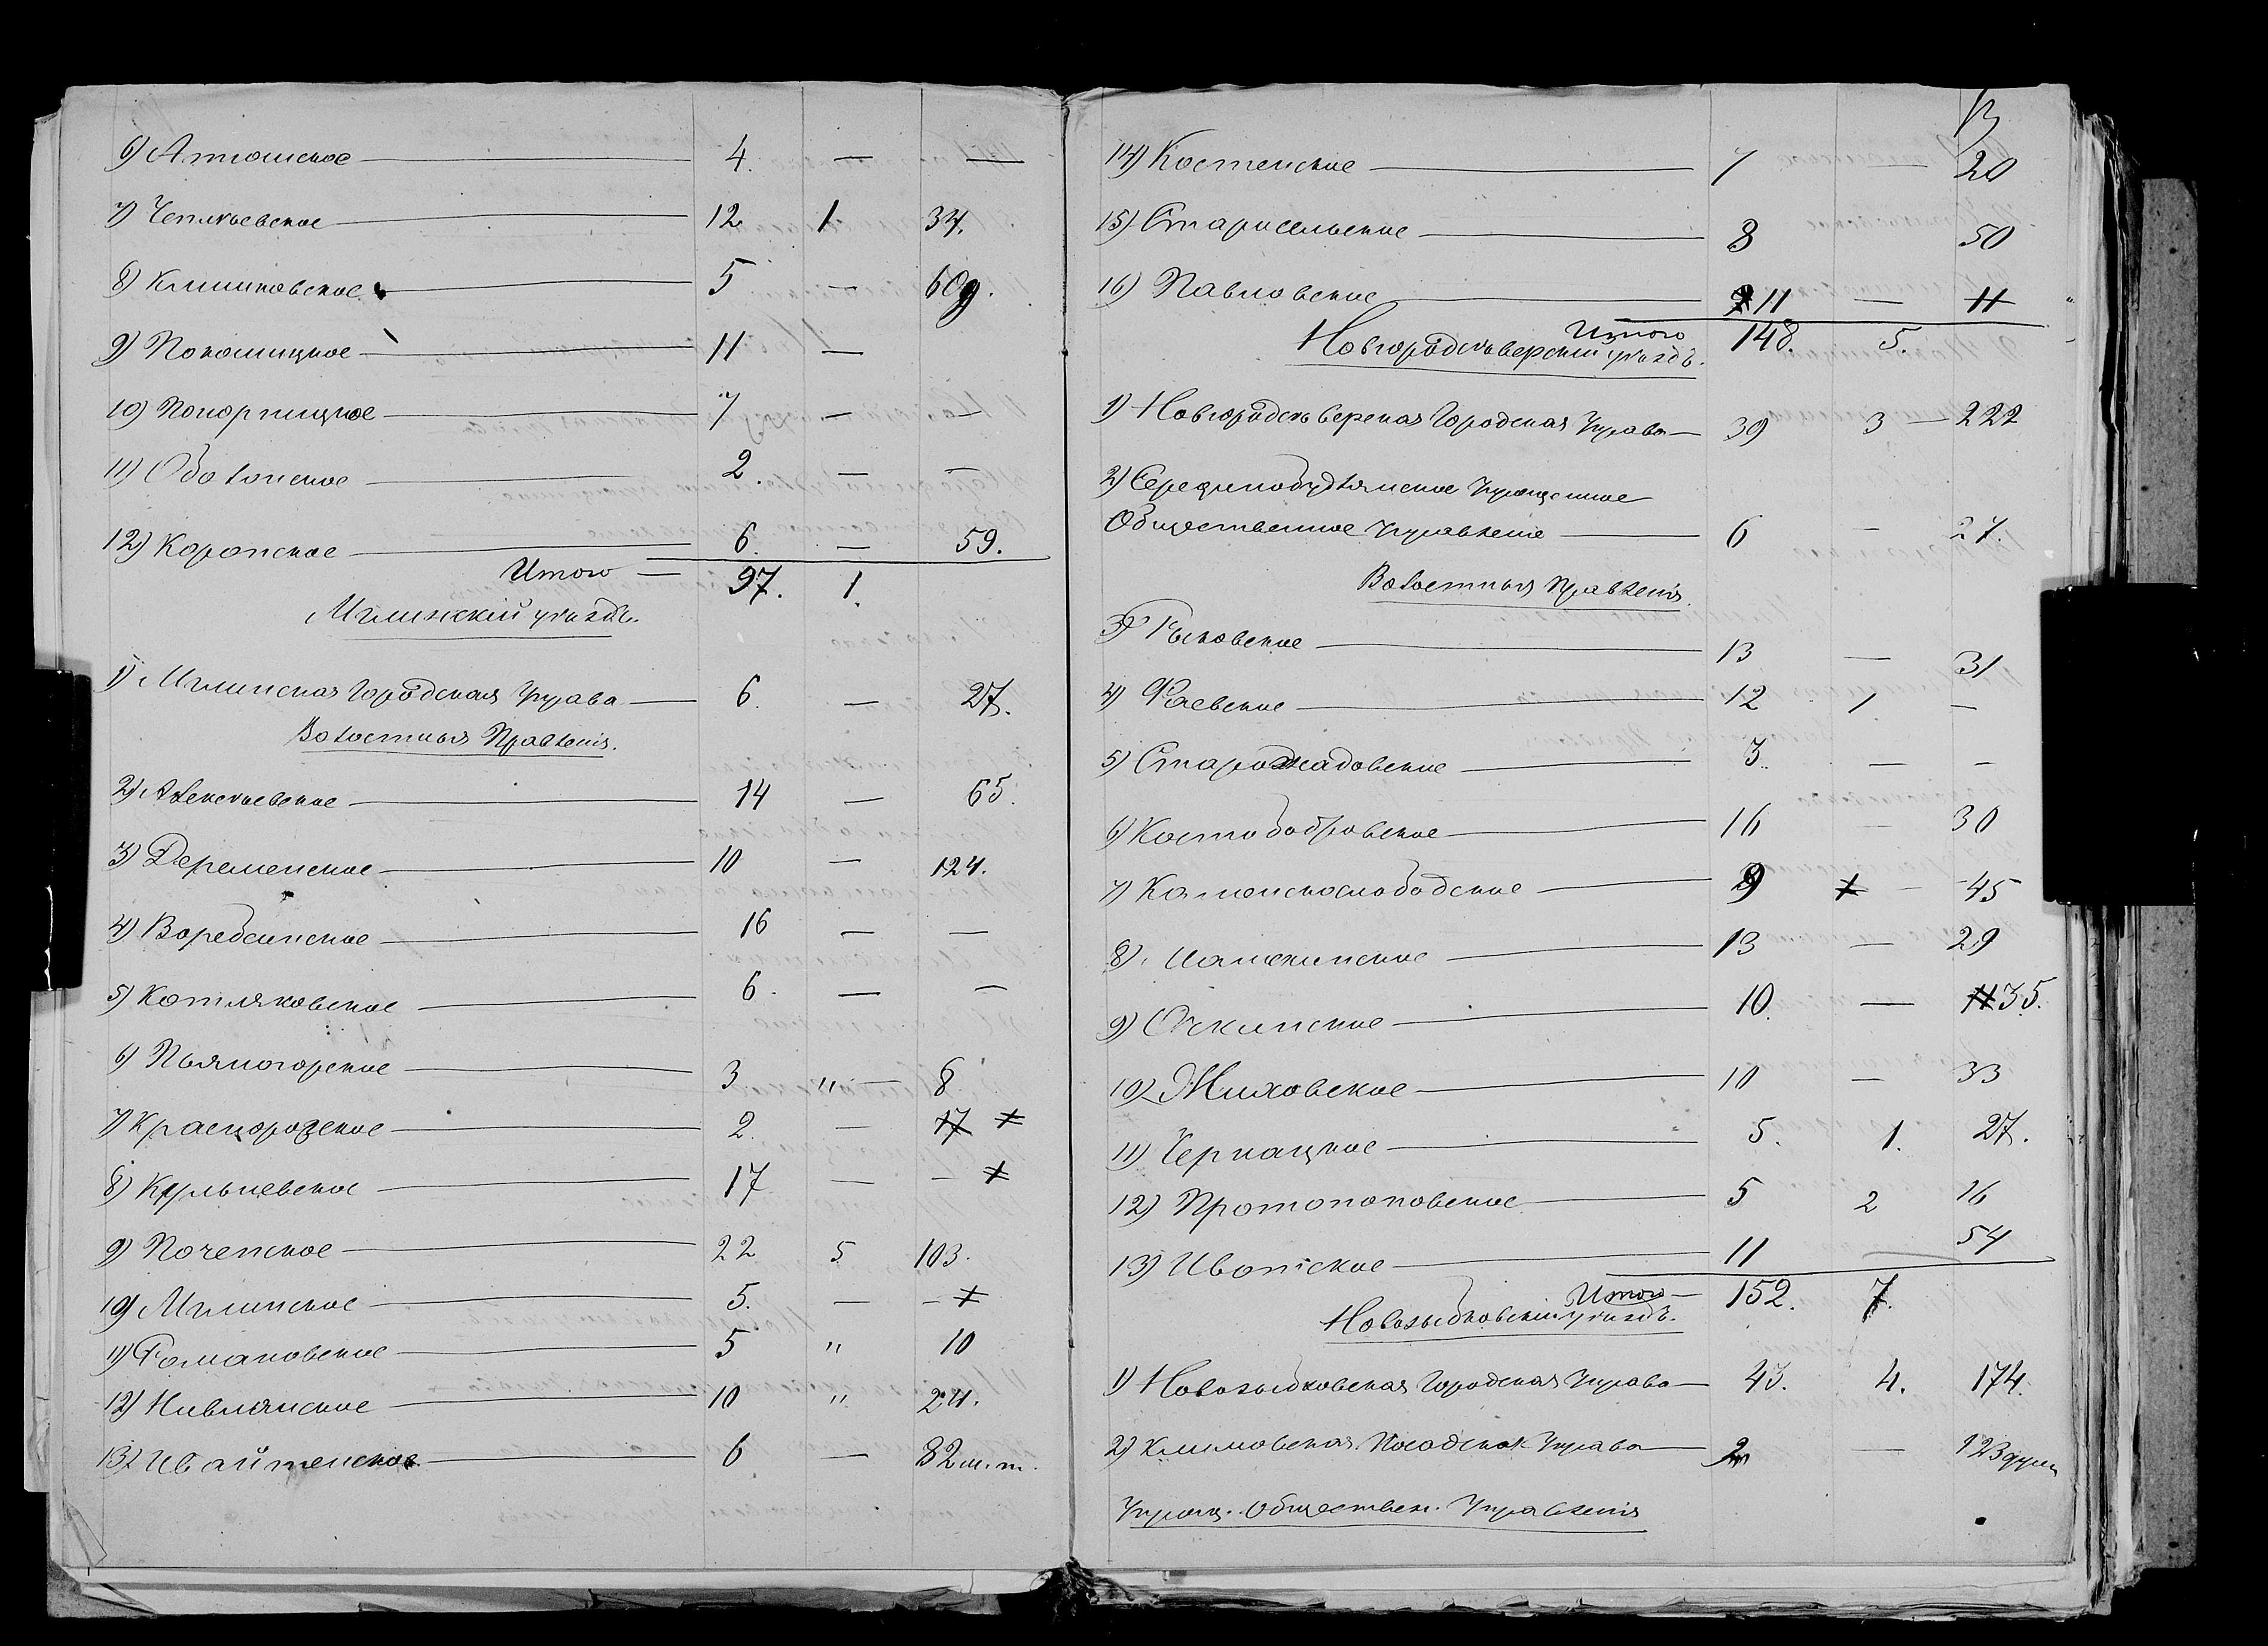 6) Атюшское — 4. — —
7) Чеплеевское — 12 1 34.
8) Клишковское — 5 — 60д.
9) Понашицкое — 11 —
10) Понорницкое — 7 — —
11) Оболонское — 2. — —
12) Коропское — 6. — 59.
Итого — 97. 1.
Мглинскій уѣздъ.
1) Мглинская Городская Управа — 6. — 27.
Волостныя Правленія.
2) Алексѣевское — 14 — 65.
3) Дременское — 10 — 124.
4) Воробеинское — 16 — —
5) Котляковское — 6. — —
6) Пьяногорское — 3 " — 8
7) Красногорское — 2. — 17
8) Кульневское — 17 — —
9) Почепское — 22 5 103.
10) Мглинское — 5. — —
11) Романовское — 5 " 10
12) Нивлянское — 10 " 24.
13) Ивайтенское — 6 — 82 м. т.
13
14) Костенское — 7 — 20
15) Старосельское — 8 50
16) Павловское — 11 — 11
Итого 148. 5.
Новгородсѣверскій уѣздъ.
1) Новгородсѣверская Городская Управа — 39 3 — 222
2) Серединобудянское Упрощенное
Общественное Управленіе — 6 — 27.
Волостныя Правленія.
3) Рыковское — 13 — 31
4) Фаевское — 12 1 —
5) Снарождовское — 3. — —
6) Костобобровское — 16 — 30
7) Каменскослободское — 9 — 45
8) Шатрищское — 13 — 29
9) Очкинское — 10. — 35.
10) Жиховское — 10 — 33
11) Чернацкое — 5. 1. 27.
12) Протопоповское — 5 2 16
13) Ивотское — 11 54
Итого — 152. 7.
Новозыбковскій уѣздъ.
1) Новозыбковская Городская Управа — 43. 4. 174.
2) Климовская Посадская Управа — 2 — 123 душ
Упрощ. Обществен. Управленія